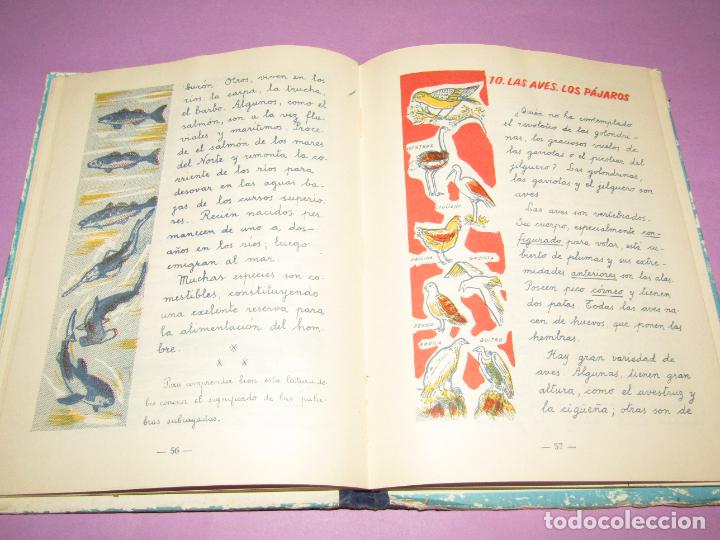 burón. Otros, viven en los
ríos: la carpa, la trucha,
el barbo. Algunos, como el
salmón, son a la vez flu-
viales y marítimos. Proce-
de el salmón de los mares
del Norte y remonta la co-
rriente de los ríos para
desovar en las aguas ba-
jas de los cursos superio-
res. Recién nacidos per-
manecen de uno a dos
años en los ríos; luego
emigran al mar.
Muchas especies son co-
mestibles, constituyendo
una excelente reserva para
la alimentación del hom-
bre.
Para comprender bien esta lectura de-
bes conocer el significado de las pala-
bras subrayadas.
— 56 —
10. LAS AVES. LOS PÁJAROS
AVESTRUZ
CIGÜEÑA
GALLINA
GAVIOTA
PERDIZ
ÁGUILA
BUITRE
¿Quién no ha contemplado
el revoloteo de las golondri-
nas, los graciosos vuelos de
las gaviotas o el picotear del
jilguero? Las golondrinas,
las gaviotas y el jilguero son
aves.
Las aves son vertebrados.
Su cuerpo, especialmente con-
figurado para volar, está cu-
bierto de plumas y sus extre-
midades anteriores son las alas.
Poseen pico córneo y tienen
dos patas. Todas las aves na-
cen de huevos, que ponen las
hembras.
Hay gran variedad de
aves. Algunas, tienen gran
altura, como el avestruz y
la cigüeña; otras son de
— 57 —
todocoleccion.net